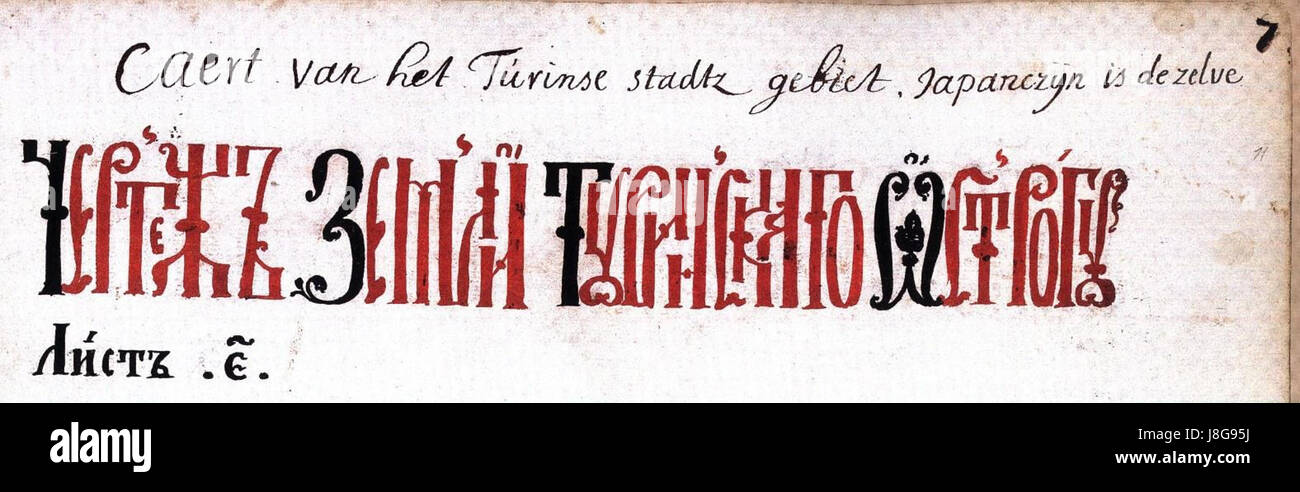 7
Caert van het Túrinse stadtz gebiet, Japanczÿn is dezelve
Чертежъ Земли Туринскаго Острогу
11
Ли́стъ .є҃.
alamy
Image ID: J8G95J
www.alamy.com